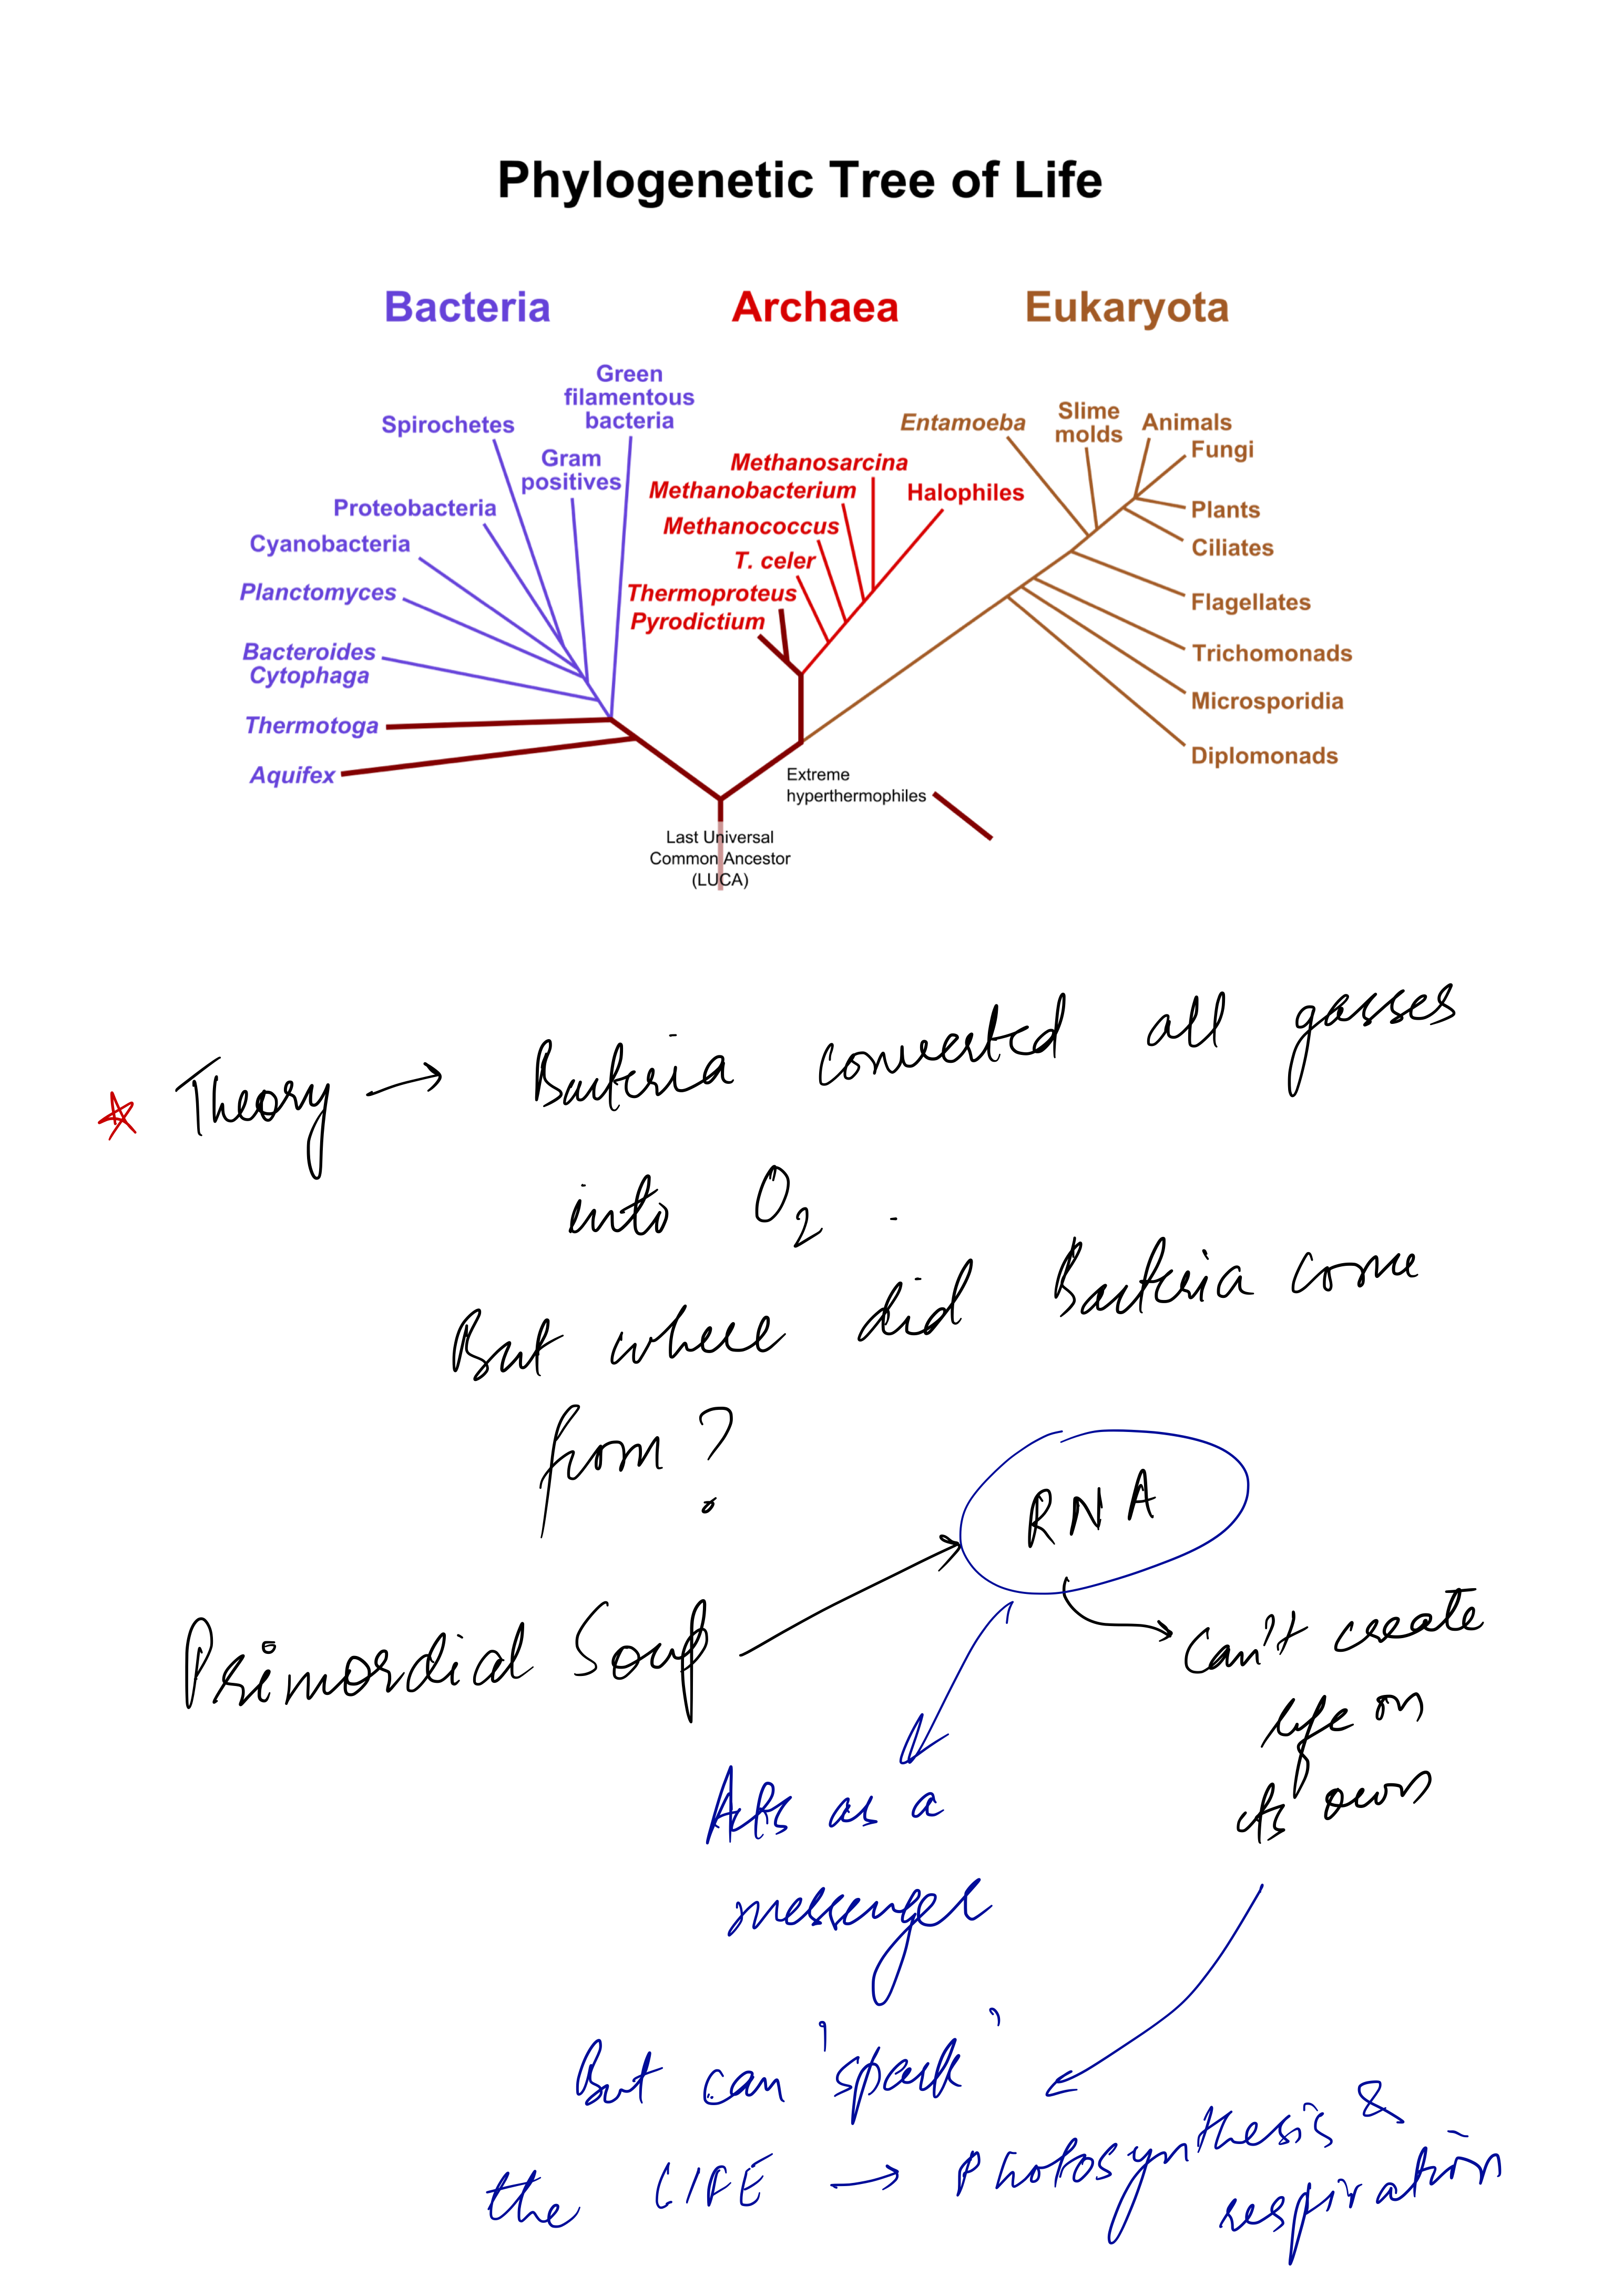 Phylogenetic Tree of Life
Bacteria
Archaea
Eukaryota
Green
filamentous
bacteria
Spirochetes
Gram
positives
Proteobacteria
Cyanobacteria
Planctomyces
Bacteroides
Cytophaga
Thermotoga
Aquifex
Methanosarcina
Methanobacterium
Halophiles
Methanococcus
T. celer
Thermoproteus
Pyrodictium
Entamoeba
Slime
molds
Animals
Fungi
Plants
Ciliates
Flagellates
Trichomonads
Microsporidia
Diplomonads
Extreme
hyperthermophiles
Last Universal
Common Ancestor
(LUCA)
Theory → Bacteria converted all gasses
into O2.
But where did Bacteria come
from?
Primordial Soup → RNA
Can't create
life on
its own
Acts as a
messenger
But can 'spark'
the LIFE → Photosynthesis &
respiration